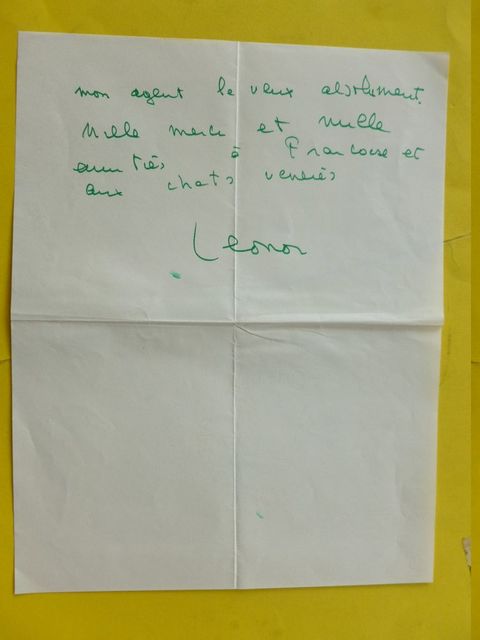 mon agent le veux absolument.
Mille merci et mille
amitiés à Francoise et
aux chats vénérés
Leonor